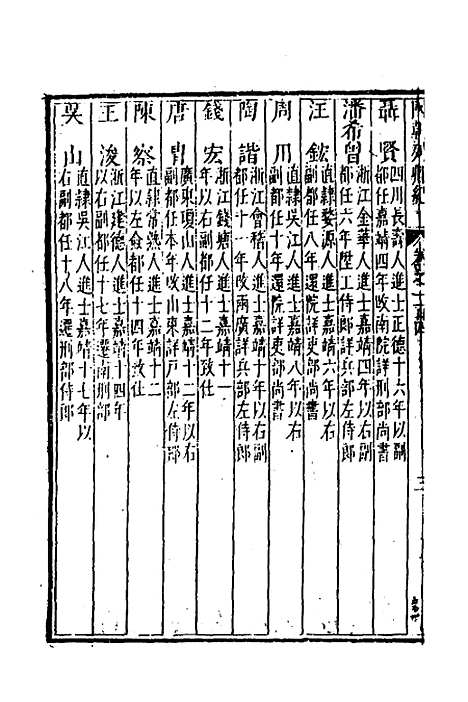 聶賢
四川長壽人進士正德十六年以副
都任嘉靖四年改南院詳刑部尚書
潘希曾
浙江金華人進士嘉靖四年以右副
都任六年陞工侍郎詳兵部左侍郎
汪鋐
直隷婺源人進士嘉靖六年以右
副都任八年還院詳吏部尚書
周用
直隷吳江人進士嘉靖八年以右
副都任十年還院詳吏部尚書
陶諧
浙江會稽人進士嘉靖十年以右副
都任十一年改兩廣詳兵部左侍郎
錢宏
浙江錢塘人進士嘉靖十一
年以右副都任十二年致仕
唐冑
廣東瓊山人進士嘉靖十二年以右
副都任本年改山東詳戶部左侍郎
陳察
直隷常熟人進士嘉靖十二
年以左僉都任十四年致仕
王浚
浙江建德人進士嘉靖十四年
以右副都任十七年遷南刑部
吳山
直隷吳江人進士嘉靖十七年以
右副都任十八年遷刑部侍郎
三